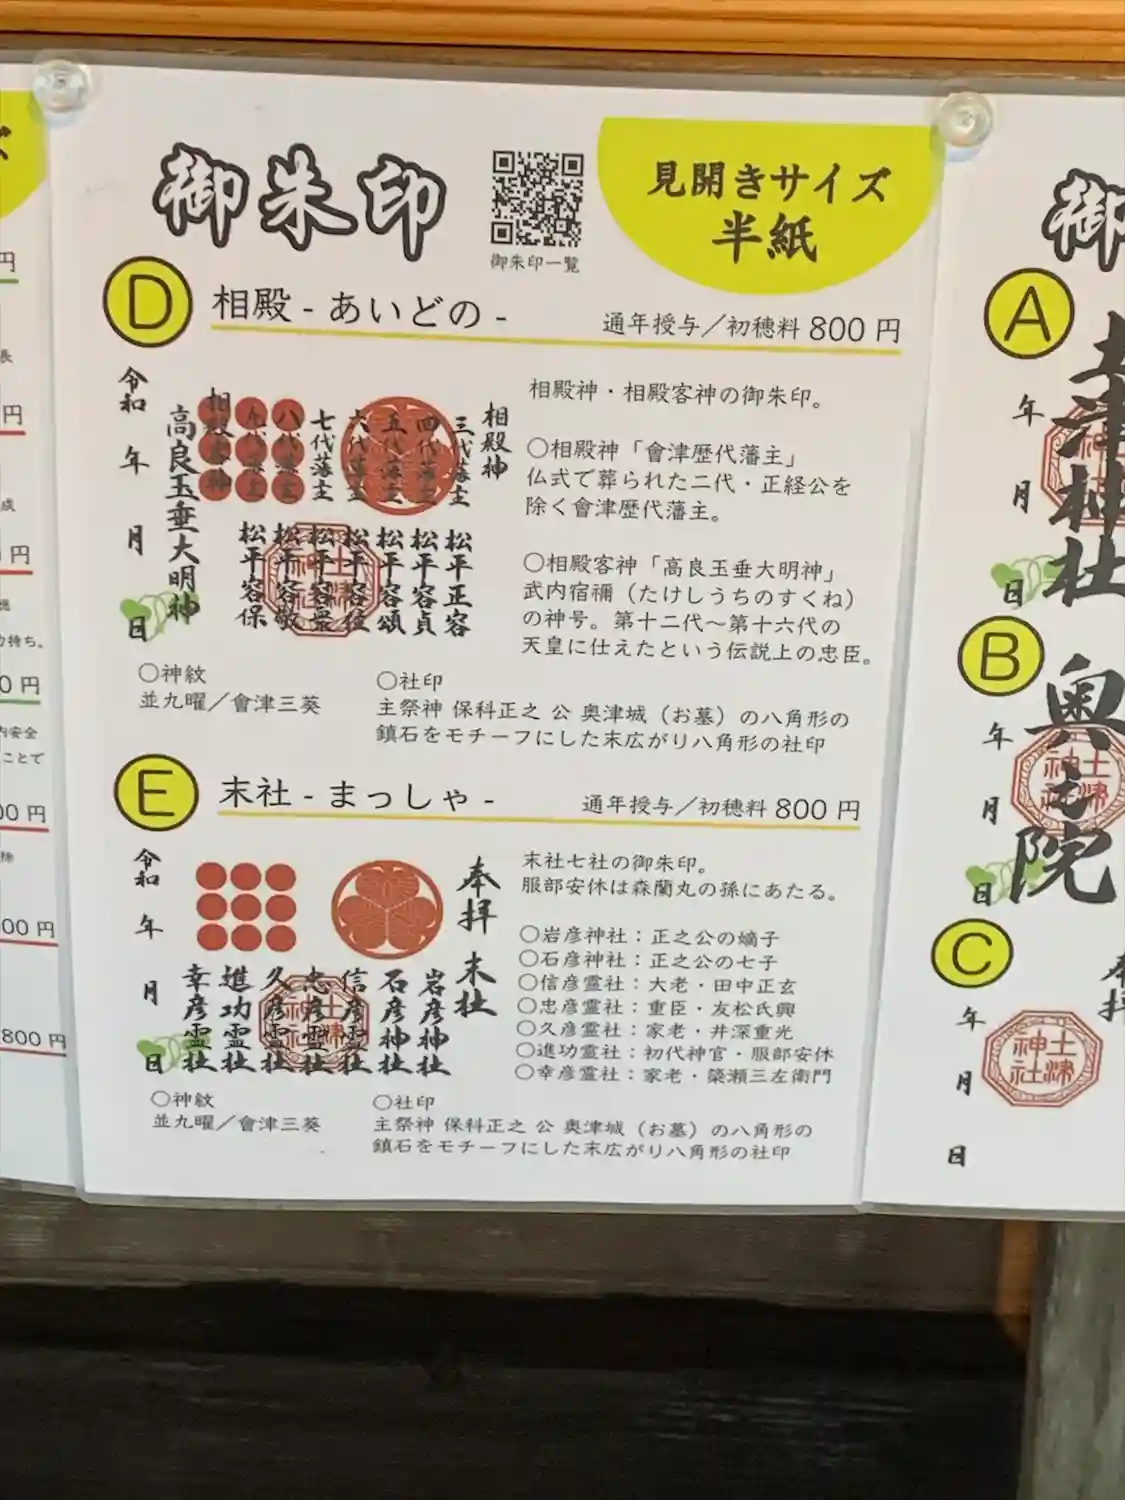 御朱印
御朱印一覧
見開きサイズ
半紙
D 相殿 - あいどの -
通年授与／初穂料 800 円
令和 年 月 日
相殿神
三代藩主 松平正容
四代藩主 松平容貞
五代藩主 松平容頌
六代藩主 松平容住
七代藩主 松平容衆
八代藩主 松平容敬
九代藩主 松平容保
高良玉垂大明神
相殿神・相殿客神の御朱印。
〇相殿神「會津歴代藩主」
仏式で葬られた二代・正経公を
除く會津歴代藩主。
〇相殿客神「高良玉垂大明神」
武内宿禰（たけしうちのすくね）
の神号。第十二代～第十六代の
天皇に仕えたという伝説上の忠臣。
〇神紋
並九曜／會津三葵
〇社印
主祭神 保科正之 公 奥津城（お墓）の八角形の
鎮石をモチーフにした末広がり八角形の社印
E 末社 - まっしゃ -
通年授与／初穂料 800 円
令和 年 月 日
奉拝 末社
岩彦神社
石彦神社
信彦霊社
忠彦霊社
久彦霊社
進功霊社
幸彦霊社
末社七社の御朱印。
服部安休は森蘭丸の孫にあたる。
〇岩彦神社：正之公の嫡子
〇石彦神社：正之公の七子
〇信彦霊社：大老・田中正玄
〇忠彦霊社：重臣・友松氏興
〇久彦霊社：家老・井深重光
〇進功霊社：初代神官・服部安休
〇幸彦霊社：家老・簗瀬三左衛門
〇神紋
並九曜／會津三葵
〇社印
主祭神 保科正之 公 奥津城（お墓）の八角形の
鎮石をモチーフにした末広がり八角形の社印
御
A
年 月 日
土津神社
B
年 月 日
奥之院
土津神社
C
年 月 日
奉拝
土津神社
円
長
円
成
円
力持ち。
0 円
内安全
ことで
00 円
00 円
800 円